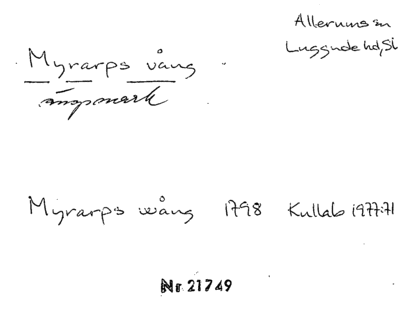 Allerums sn
Luggude hd, Sk
Myrarps vång
ängsmark
Myrarps wång 1798 Kullab 1977:71
Nr 21749